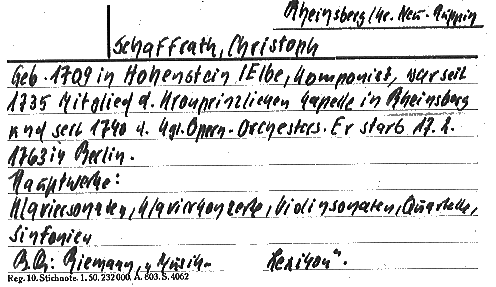 Rheinsberg/Kr. Neu-Ruppin
Schaffrath, Christoph
Geb. 1709 in Hohenstein/Elbe, Komponist, war seit
1735 Mitglied d. Kronprinzlichen Kapelle in Rheinsberg
und seit 1740 d. Kgl. Opern-Orchesters. Er starb 17.2.
1763 in Berlin.
Hauptwerke:
Klaviersonaten, Klavierkonzerte, Violinsonaten, Quartette,
Sinfonien
B.Q.: Riemann, „Musik- Lexikon".
Reg. 10. Stichnote. 1. 50. 232000. A. 803. S. 4062